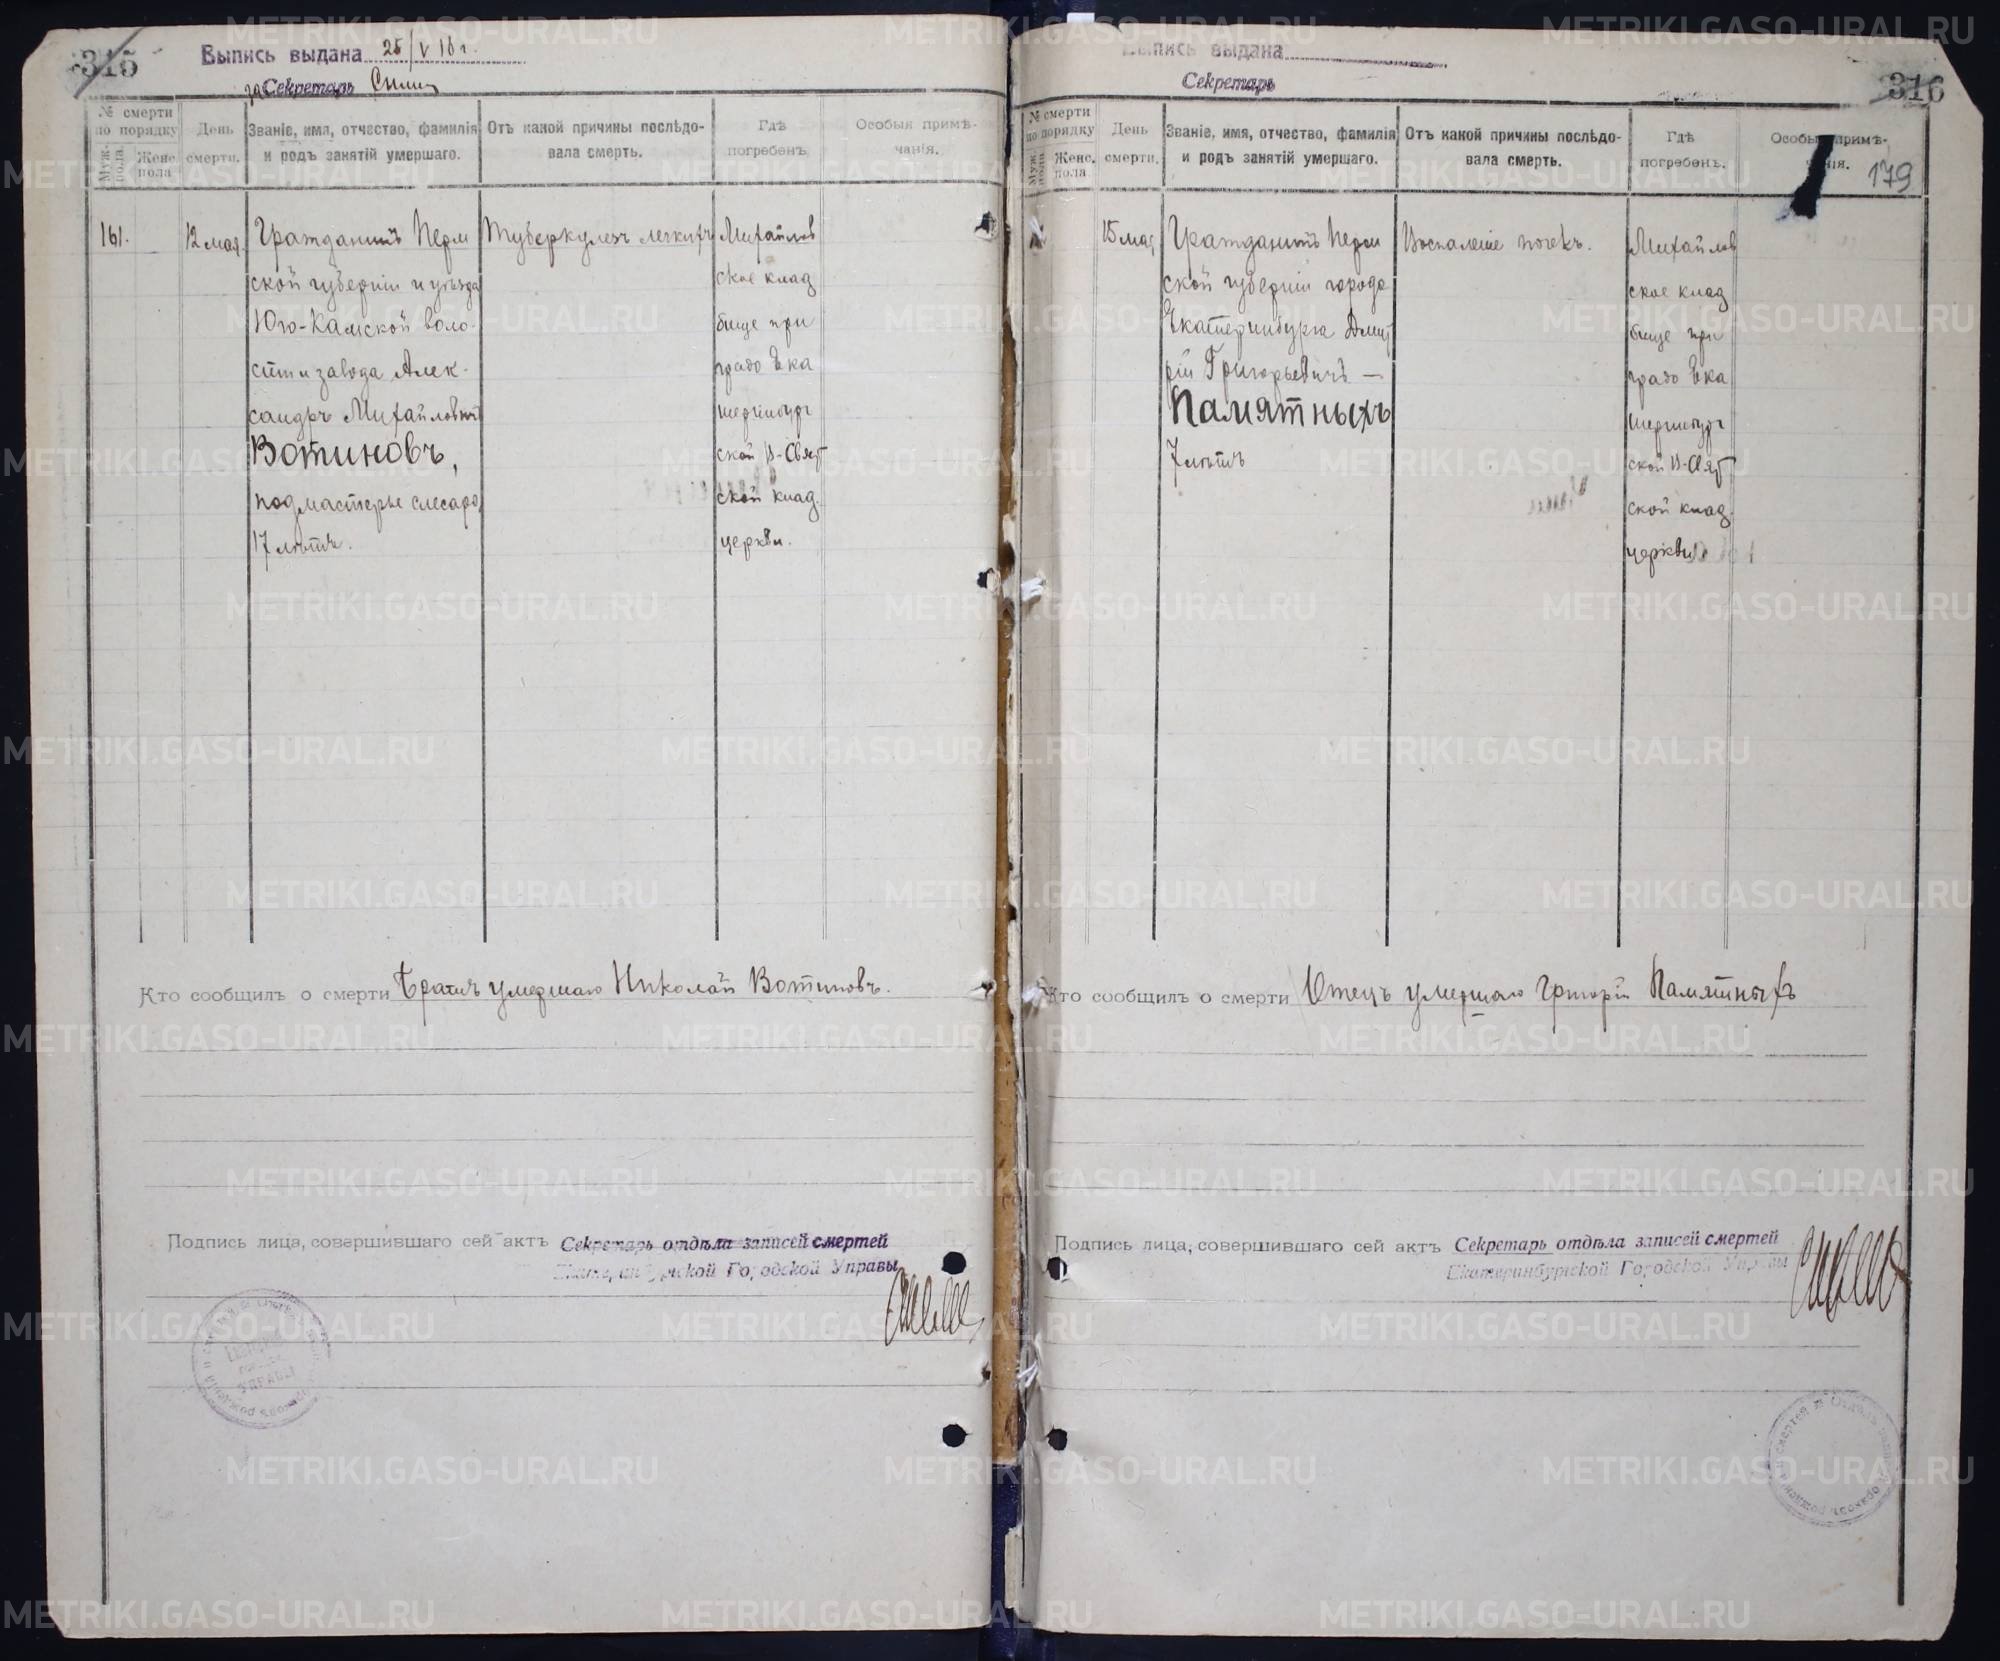 315
Выпись выдана 25/V 18 г.
за Секретарь
№ смерти по порядку
Муж. пола.
Женс. пола
День смерти.
Званіе, имя, отчество, фамилія и родъ занятій умершаго.
Отъ какой причины послѣдовала смерть.
Гдѣ погребенъ.
Особыя примѣчанія.
161.
12 мая
Гражданинъ Перм
ской губерніи и уѣзда
Юго-Камской воло-
сти и завода Алек-
сандръ Михайловичъ
Вотиновъ,
подмастерье слесаря
17 лѣтъ.
Туберкулезъ легкихъ
Михайлов
ское клад
бище при
градо Ека
теринбург
ской В-Свят
ской клад.
церкви.
Кто сообщилъ о смерти Братъ умершаго Николай Вотиновъ.
Подпись лица, совершившаго сей актъ Секретарь отдѣла записей смертей
Екатеринбургской Городской Управы
316
Выпись выдана
Секретарь
179
№ смерти по порядку
Муж. пола
Женс. пола.
День смерти.
Званіе, имя, отчество, фамилія и родъ занятій умершаго.
Отъ какой причины послѣдовала смерть.
Гдѣ погребенъ.
Особыя примѣчанія.
15 мая
Гражданинъ Перм
ской губерніи города
Екатеринбурга Дмит
рій Григорьевичъ —
Памятныхъ
7 лѣтъ
Воспаленіе почекъ.
Михайлов
ское клад
бище при
градо Ека
теринбург
ской В-Свят
ской клад.
церкви
Кто сообщилъ о смерти Отецъ умершаго Григорій Памятныхъ
Подпись лица, совершившаго сей актъ Секретарь отдѣла записей смертей
Екатеринбургской Городской Управы
METRIKI.GASO-URAL.RU